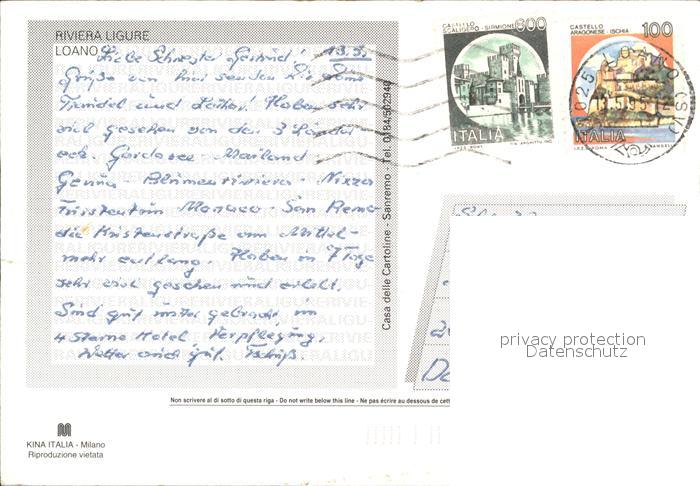 RIVIERA LIGURE
LOANO
Liebe Schwester Gertrud! 13.5.
Grüße von hier senden Dir
Trudel und Haben sehr
viel gesehen von den 3 Ländern
Gardasee, Mailand
Genua - Blumenriviera - Nizza
Fürstentum Monaco - San Remo
die Küstenstraße am Mittel-
meer entlang. Haben in 7 Tage
sehr viel gesehen und erlebt.
Sind gut unter gebracht, im
4 Sterne Hotel Verpflegung,
Wetter auch gut. Tschüß.
Casa delle Cartoline - Sanremo - Tel. 0184/502940
CASTELLO
SCALIGERO - SIRMIONE
600
ITALIA
CASTELLO
ARAGONESE - ISCHIA
100
ITALIA
Non scrivere al di sotto di questa riga - Do not write below this line - Ne pas écrire au dessous de cett
KINA ITALIA - Milano
Riproduzione vietata
privacy protection
Datenschutz